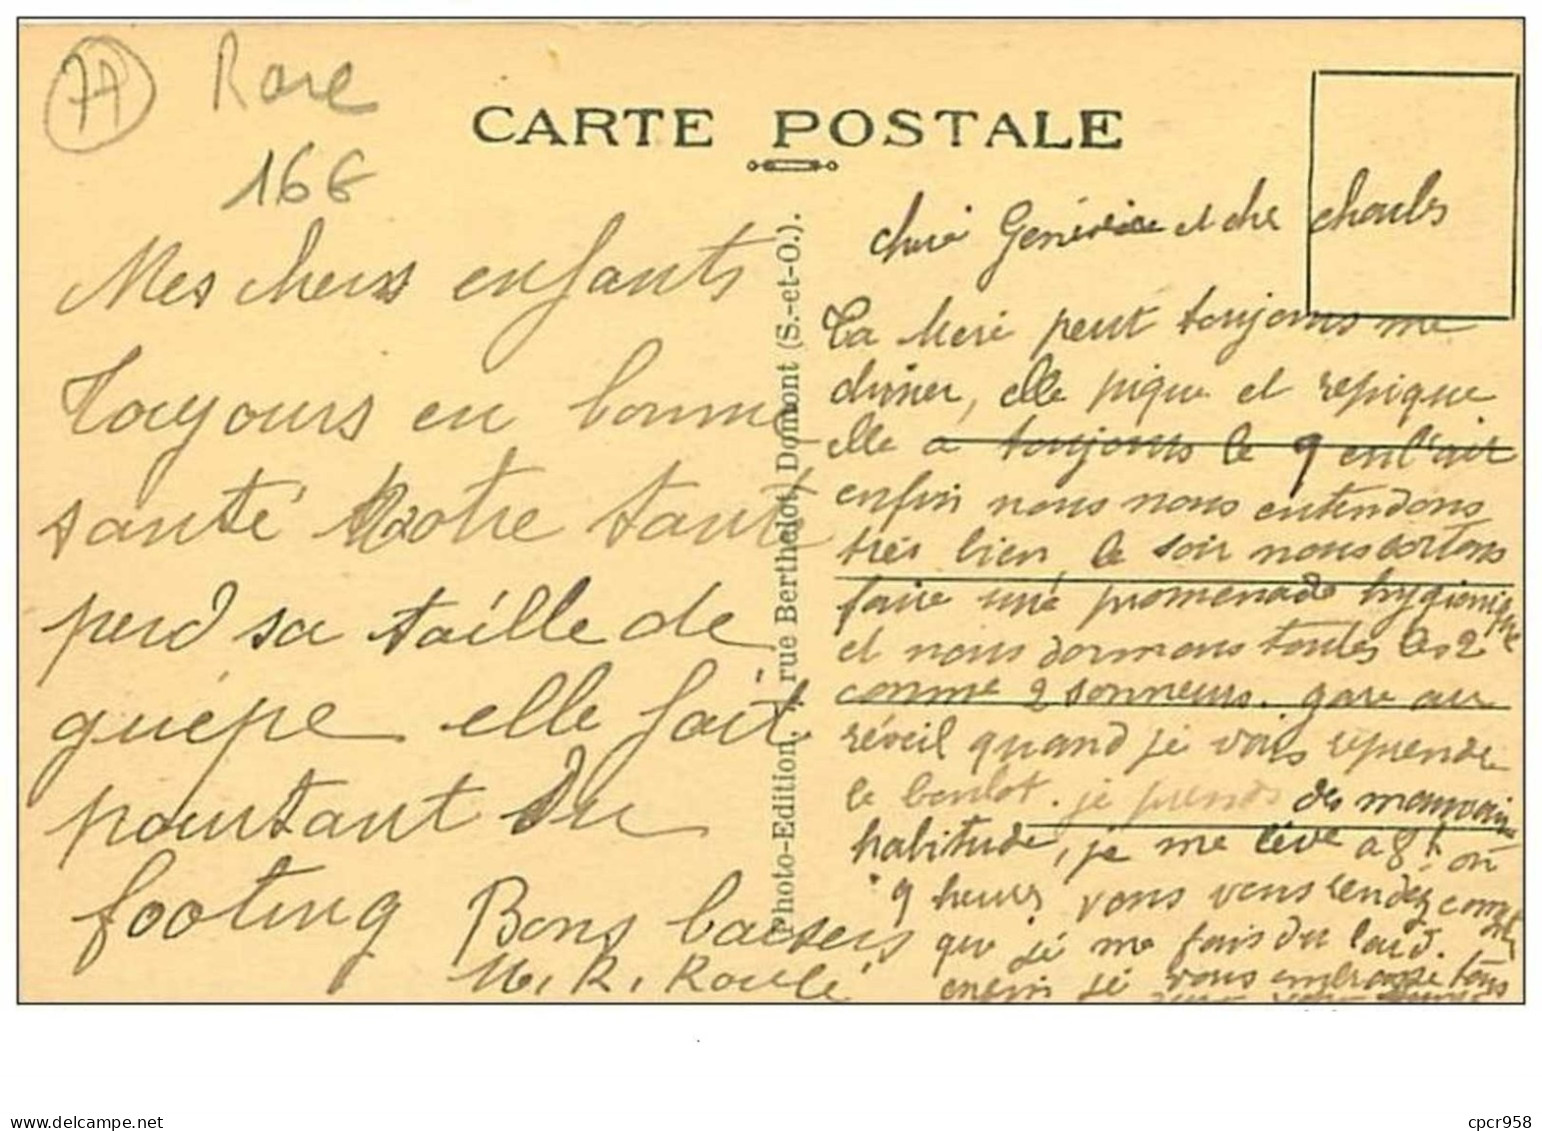 77 Rare
16€
CARTE POSTALE
Mes chers enfants
Toujours en bonne
santé Notre tante
perd sa taille de
guépe elle fait
pourtant du
footing Bons baisers
M. R. Roulé
Photo-Edition, rue Berthelot, Domont (S.-et-O.).
chère Genévieve et cher charles
Ta Mere peut toujours me
diner, elle pique et repique
elle a toujours le q en l'air
enfin nous nous entendons
très bien, le soir nous sortons
faire une promenade hygiènique
et nous dormons toutes les 2
comme 2 sonneurs. gare au
réveil quand je vais reprendre
le boulot. je prends des mauvaise
habitude, je me lève a 8h ou
9 heures vous vous rendez compte
que je me fais du lard.
enfin je vous embrasse tous
delcampe.net
cpcr958